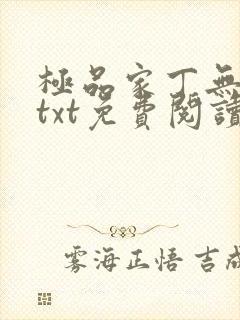 極品家丁無
txt免費閱讀
霧海正悟 吉成